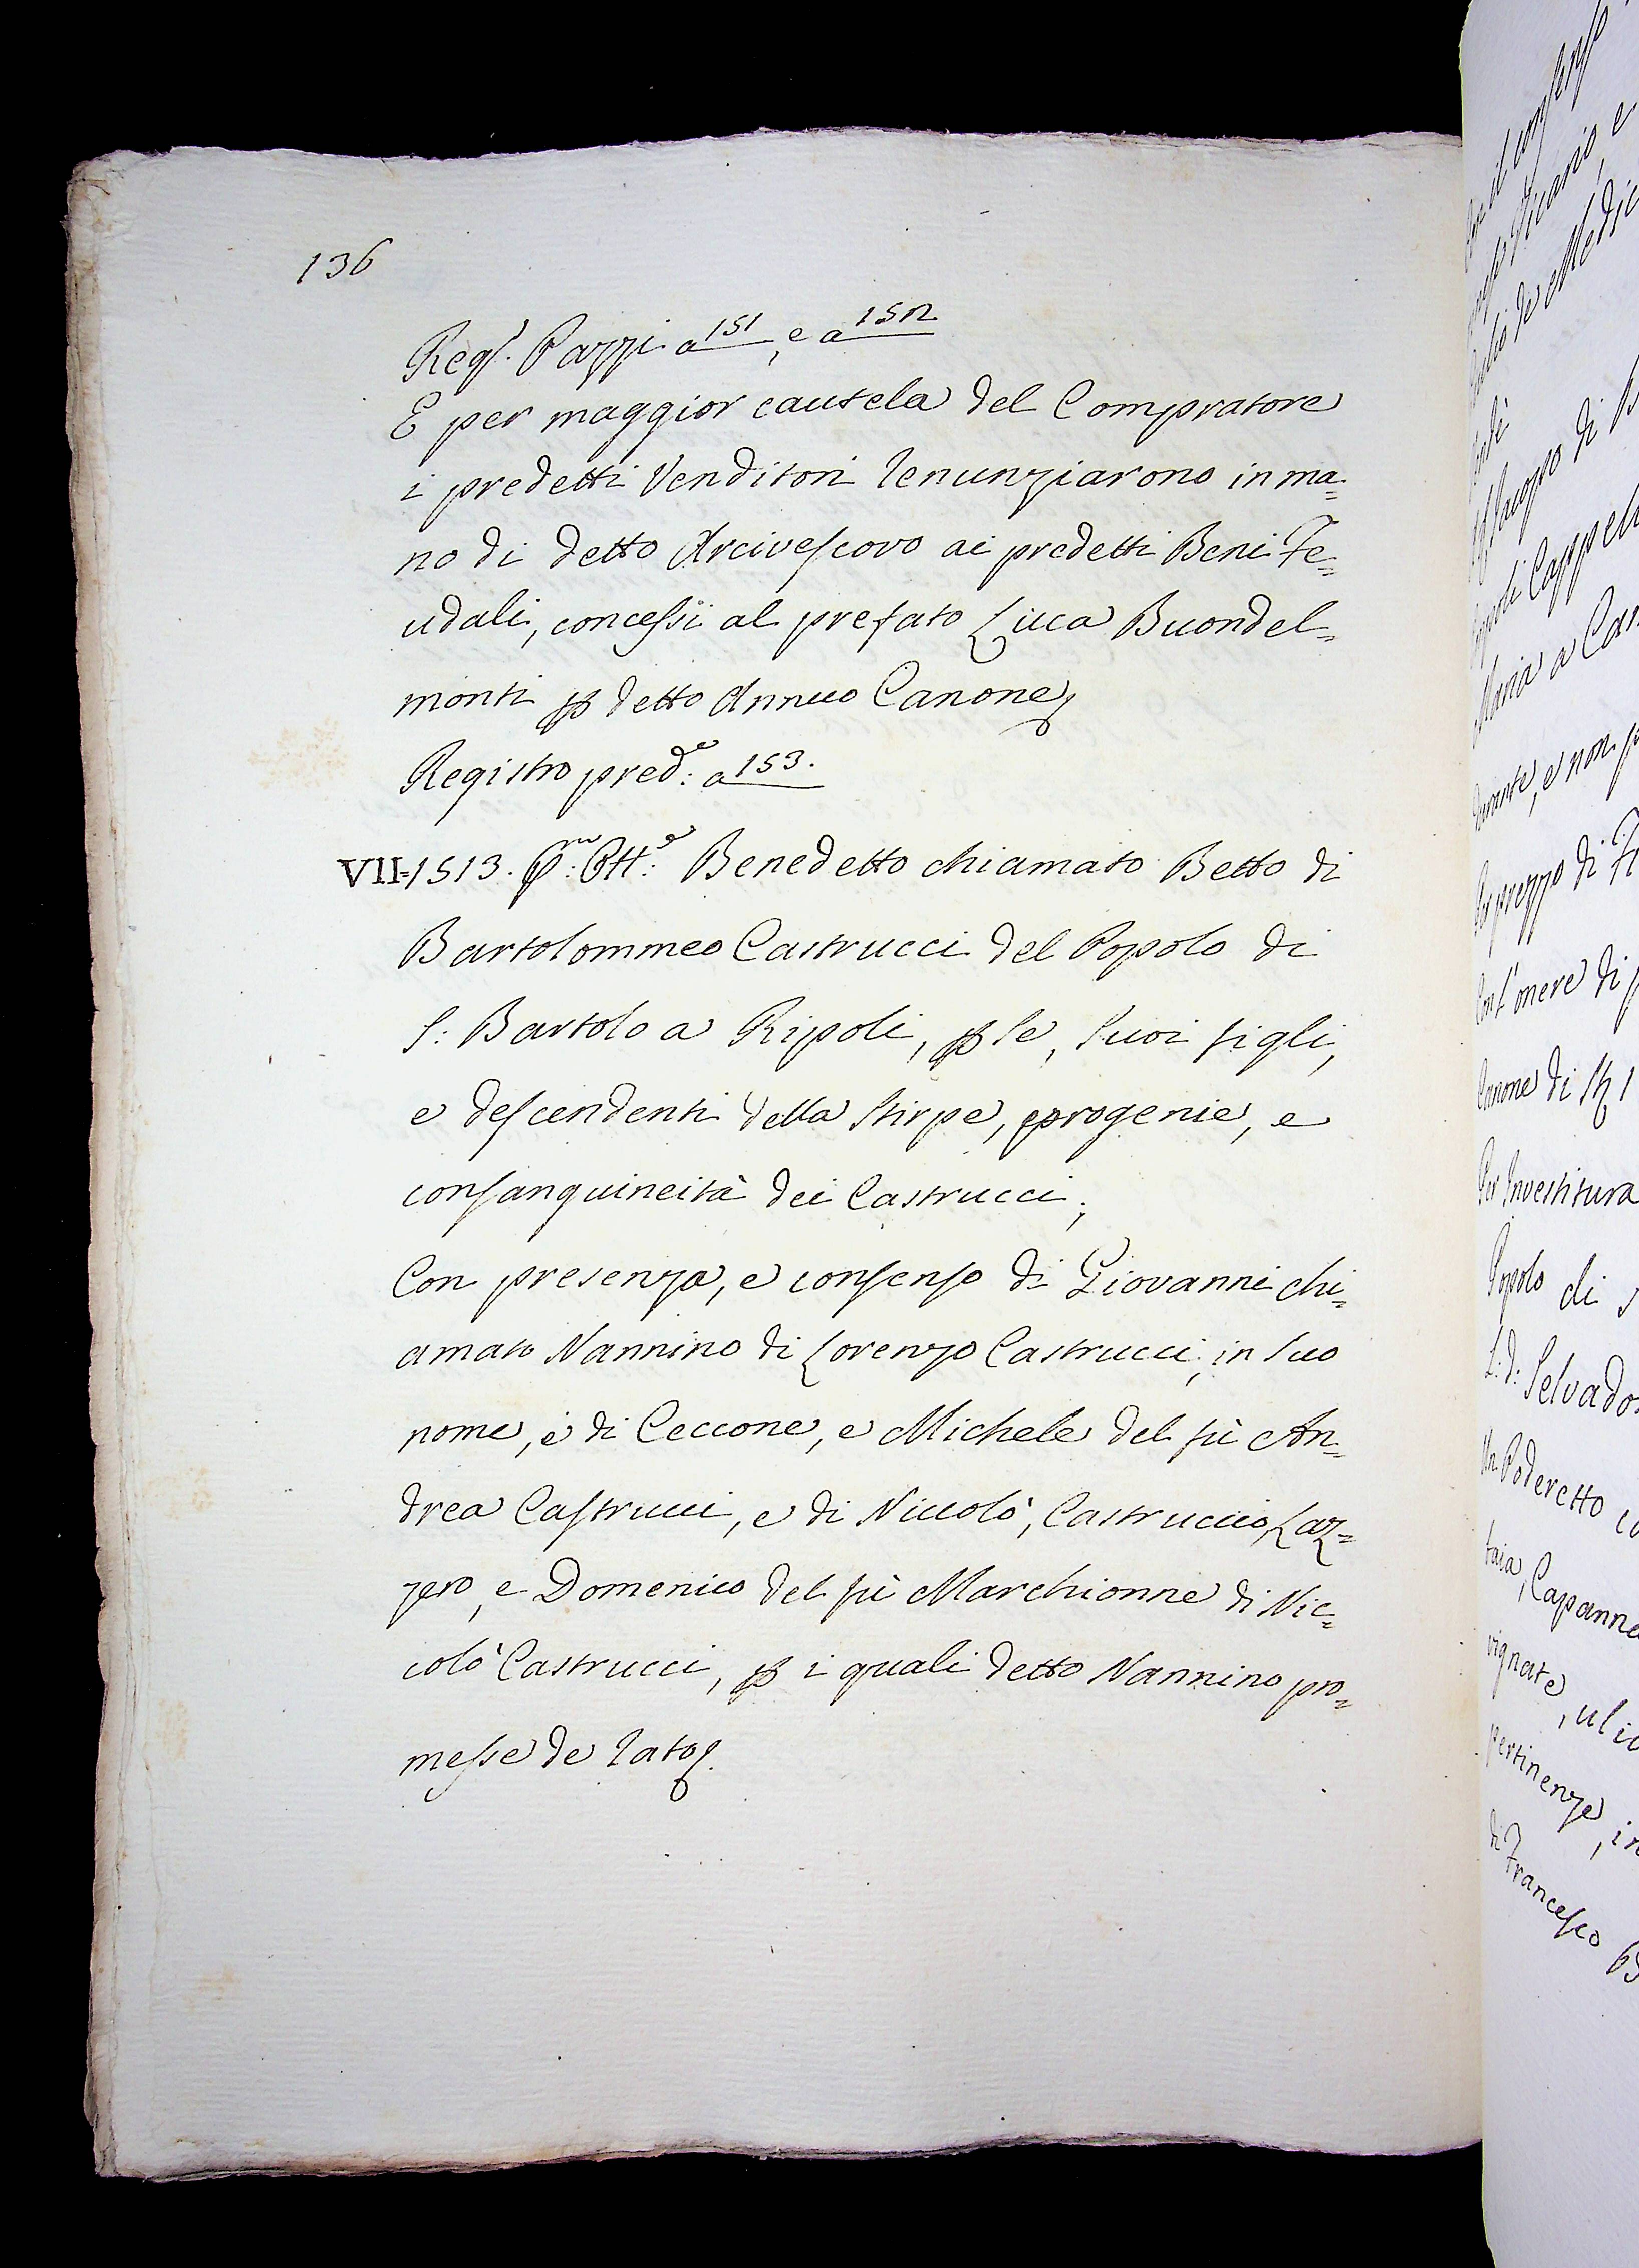 136
Reg.º Pazzi a 151, e a 152
E per maggior cautela del Compratore
i predetti Venditori renunziarono in ma=
no di detto Arcivescovo ai predetti Beni Fe=
udali, concessi al prefato Luca Buondel=
monti ꝑ detto Annuo Canone
Registro pred:º a 153.
VII=1513. P:mo Ott:e Benedetto chiamato Betto di
Bartolommeo Castrucci del Popolo di
S: Bartolo a Ripoli, ꝑ se, suoi figli,
e descendenti della stirpe, progenie, e
consanguineità dei Castrucci;
Con presenza, e consenso di Giovanni chi=
amato Nannino di Lorenzo Castrucci, in suo
nome, e di Ceccone, e Michele del fù An=
drea Castrucci, e di Niccolò, Castruccio, Laz=
zero, e Domenico del fù Marchionne di Nic=
colò Castrucci, ꝑ i quali detto Nannino pro=
messe de rato
il consenso
Vicario, e
de Medic
Jacopo di
Cappel
Maria a Car
durante, e non p
prezzo di Fi
Con l'onere di p
Canone di
Per Investitura
Popolo di S
Selvado
Un Poderetto co
taia, Capanne
vignate, uli
pertinenze, in
di Francesco